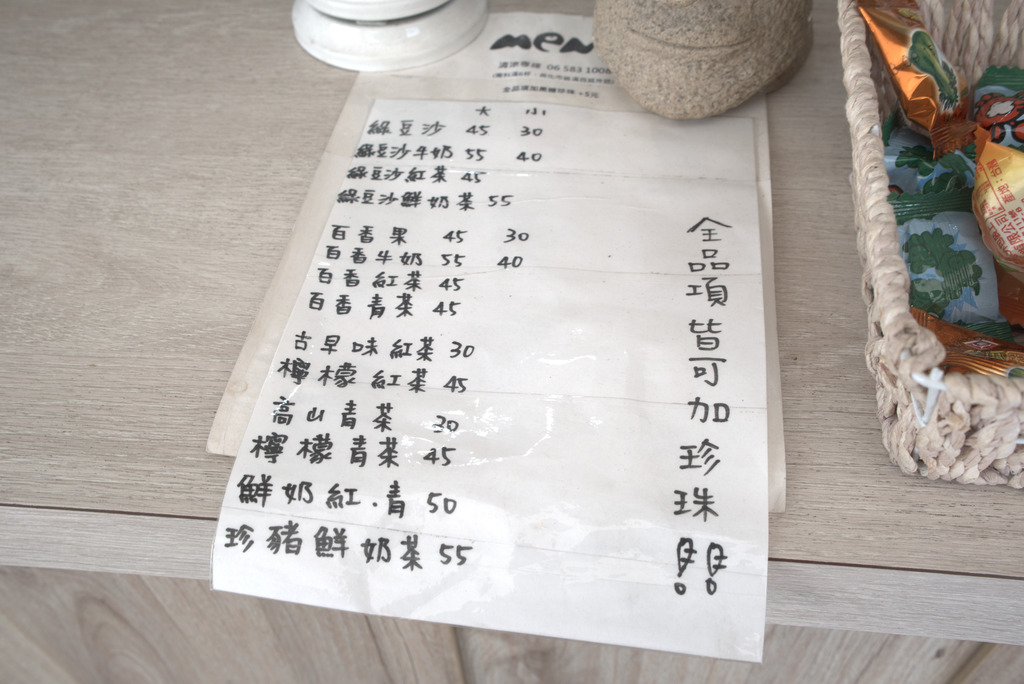 MEN
清涼專線 06 583 1008
全品項加黑糖珍珠 +5元
大 小
綠豆沙 45 30
綠豆沙牛奶 55 40
綠豆沙紅茶 45
綠豆沙鮮奶茶 55
百香果 45 30
百香牛奶 55 40
百香紅茶 45
百香青茶 45
古早味紅茶 30
檸檬紅茶 45
高山青茶 30
檸檬青茶 45
鮮奶紅.青 50
珍豬鮮奶茶 55
全品項皆可加珍珠!!